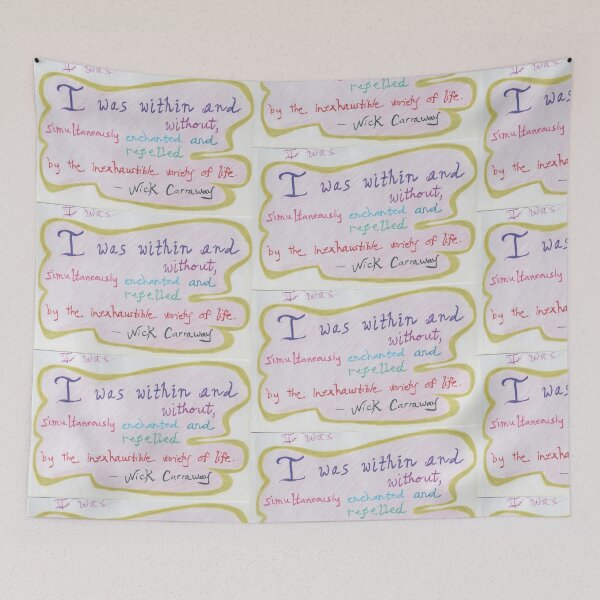 I was
I was within and
without,
simultaneously enchanted and
repelled
by the inexhaustible variety of life.
— Nick Carraway
I was
I was within and
without,
simultaneously enchanted and
repelled
by the inexhaustible variety of life.
— Nick Carraway
I was
I was within and
without,
simultaneously enchanted and
repelled
by the inexhaustible variety of life.
— Nick Carraway
I was
repelled
by the inexhaustible variety of life.
— Nick Carraway
I was
I was within and
without,
simultaneously enchanted and
repelled
by the inexhaustible variety of life.
— Nick Carraway
I was
I was within and
without,
simultaneously enchanted and
repelled
by the inexhaustible variety of life.
— Nick Carraway
I was
I was within and
without,
simultaneously enchanted and
repelled
I was
I was
simultaneously
by the inexha
I was
I was
simultaneously
by the inexha
I was
I was
simultaneously
by the inexha
I was